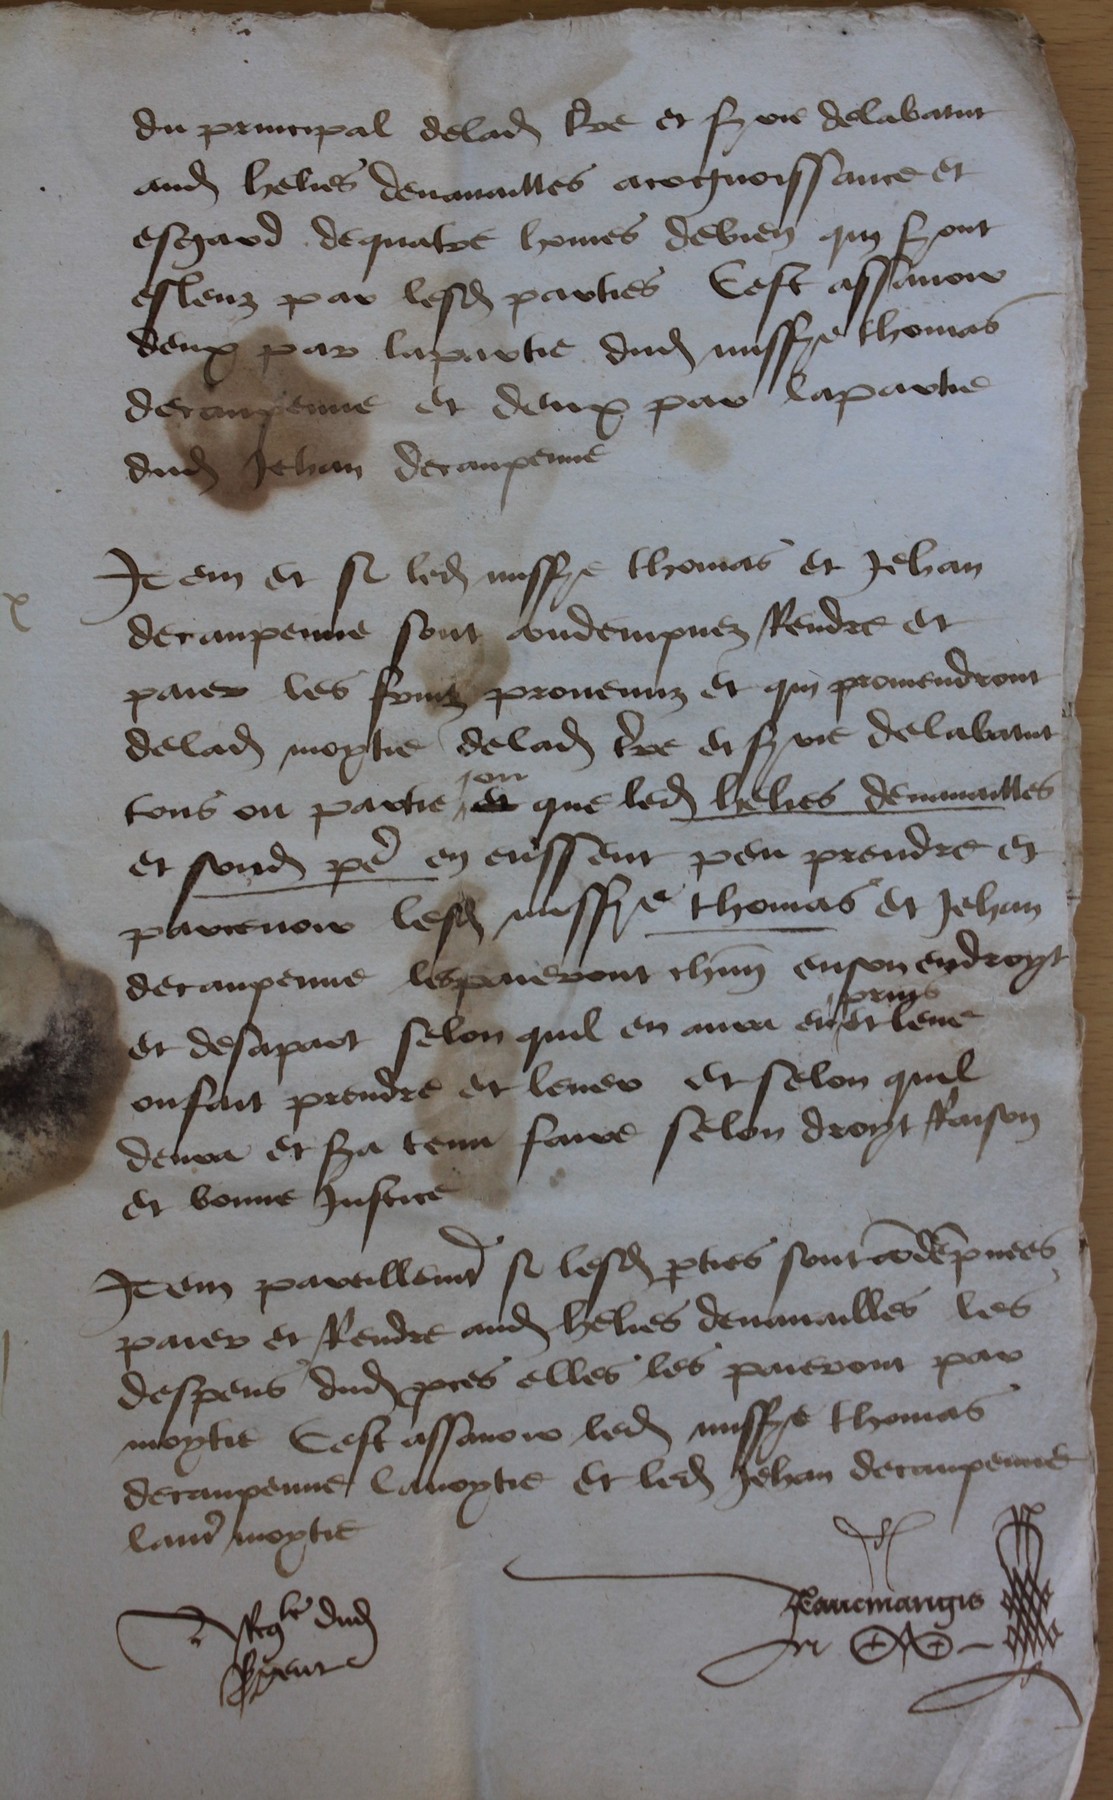 du principal delad tre et syrie delabatut
aud helies denavailles acognoissance et
esgard dequatre homes debien qui syont
esleuz par lesd parties Cest assavoir
deux par lapartie dud missye thomas
decaupenne et deux par lapartie
dud Jehan decaupenne
Item et si led missye thomas et Jehan
decaupenne sont condempnez Rendre et
paier les fruiz provenuz et qui proviendront
delad moytie delad tre et syrie delabatut
tous ou partie ou que led helies denavailles
et sond pe en eussent peu prendre et
parcevoir lesd messye thomas et Jehan
decaupenne lespaieront chun enson endroyt
et desapart selon quil en aura prins et leve
oufait prendre et lever et selon quil
devra et sya tenu faire selon droyt Raison
et bonne Justice
Item pareillemt si lesd pties sont codepnees
paier et Rendre aud helies denavailles les
despens dud pces elles les paieront par
moytie Cest assavoir led missye thomas
decaupenne lamoytie et led Jehan decaupenne
laut moytie